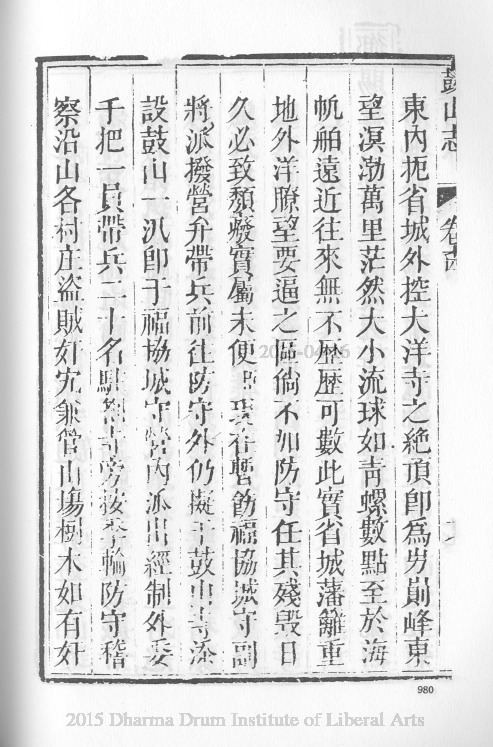 鼓山志
卷十四
東內扼省城外控大洋寺之絶頂卽為屴崱峰東
望溟渤萬里茫然大小流球如靑螺數點至於海
帆舶遠近往來無不歷歷可數此實省城藩籬重
地外洋瞭望要逼之區倘不加防守任其殘毀日
久必致頽廢實屬未便 暫飭福協城守副
將派撥營弁帶兵前往防守外仍擬于鼓山寺添
設鼓山一汎卽于福協城守營內派出經制外委
千把一員帶兵二十名駐劄寺旁按季輪防守稽
察沿山各村庄盜賊奸宄兼管山塲樹木如有奸
980
2015 Dharma Drum Institute of Liberal Arts